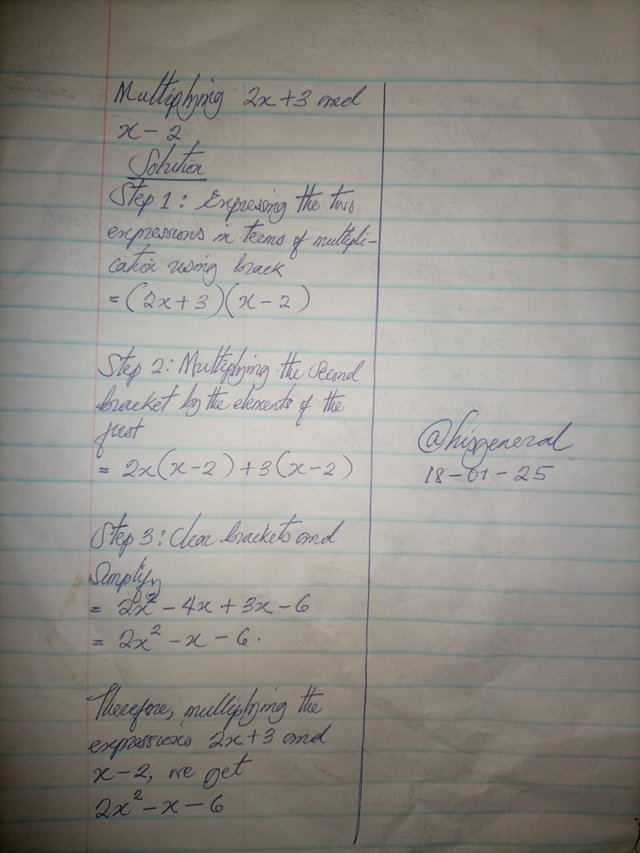 Multiplying 2x+3 and
x-2
Solution
Step 1: Expressing the two
expressions in terms of multipli-
cation using brack
=(2x+3)(x-2)
Step 2: Multiplying the second
bracket by the elements of the
first
= 2x(x-2)+3(x-2)
Step 3: Clear brackets and
Simplify
= 2x² - 4x + 3x - 6
= 2x² - x - 6.
Therefore, multiplying the
expressions 2x+3 and
x-2, we get
2x² - x - 6
@hisgeneral
18-01-25